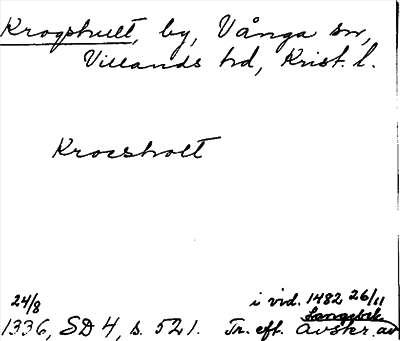 Krogshult, by, Vånga sn,
Villands hd, Krist. l.
Krocsholt
24/8
i vid. 1482 26/11
Langebek
1336, SD 4, s. 521. Tr. eft. Avskr. av